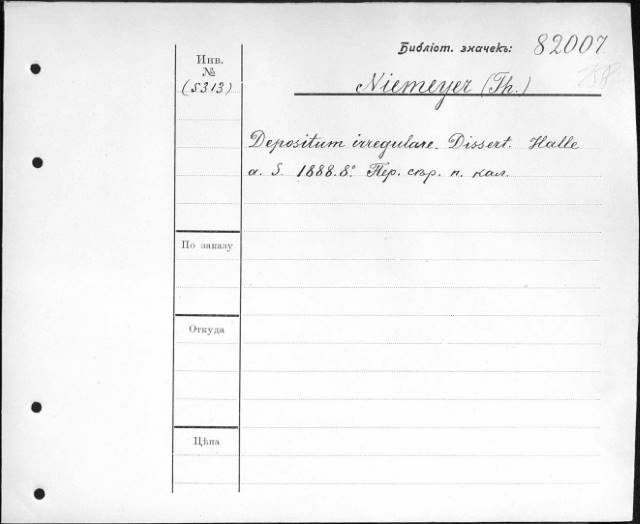 Библіот. значекъ: 82007.
Инв.
№
(5313)
Niemeyer (Th.)
Depositum irregulare. Dissert. Halle
a. S. 1888. 8° Пер. стр. п. кал.
По заказу
Откуда
Цѣна